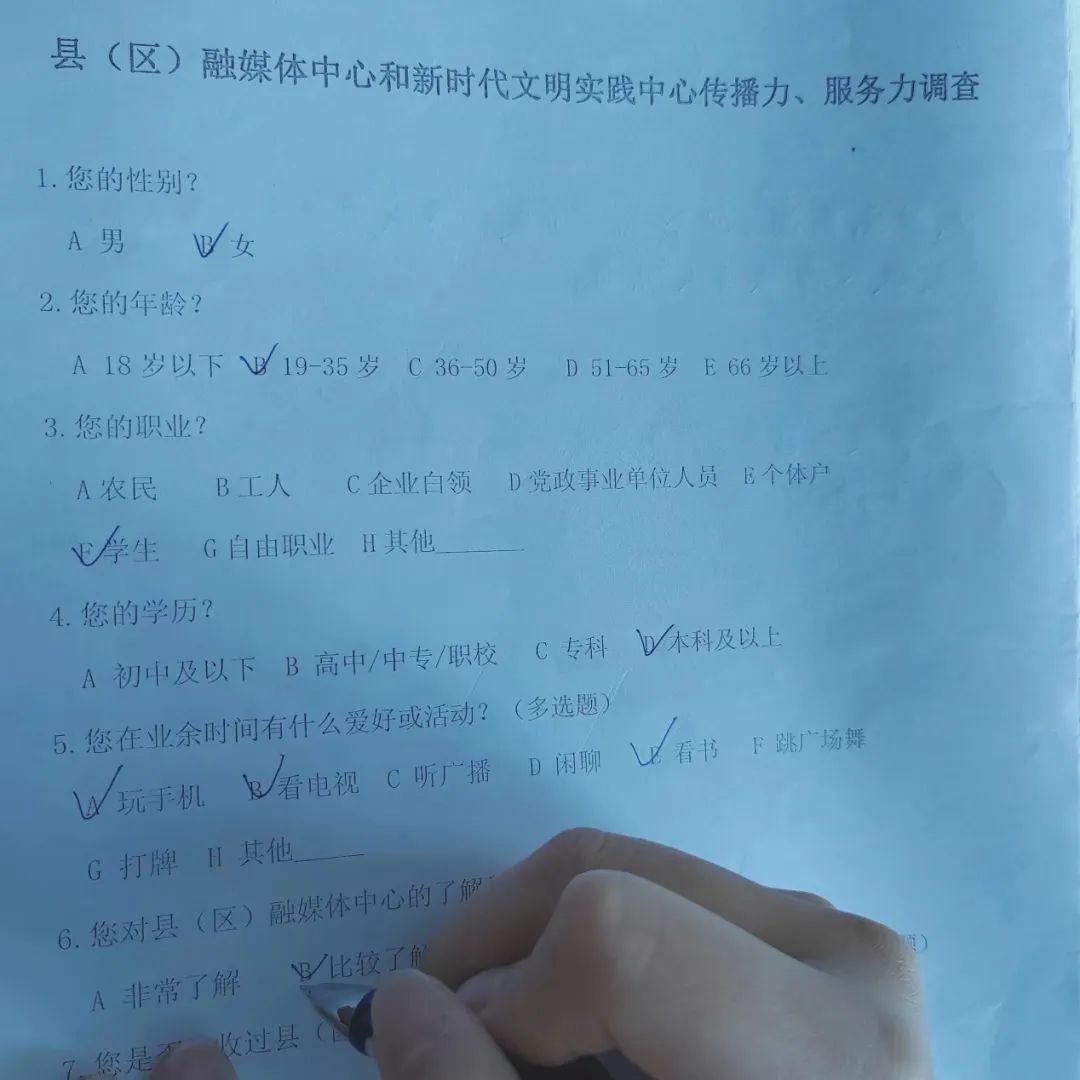 县（区）融媒体中心和新时代文明实践中心传播力、服务力调查
1.您的性别？
A 男 B 女
2.您的年龄？
A 18岁以下 B 19-35岁 C 36-50岁 D 51-65岁 E 66岁以上
3.您的职业？
A农民 B工人 C企业白领 D党政事业单位人员 E个体户
F学生 G自由职业 H其他______
4.您的学历？
A 初中及以下 B 高中/中专/职校 C 专科 D 本科及以上
5.您在业余时间有什么爱好或活动？（多选题）
A 玩手机 B 看电视 C 听广播 D 闲聊 E 看书 F 跳广场舞
G 打牌 H 其他_____
6.您对县（区）融媒体中心的了解
A 非常了解 B 比较了解
7.您是否 收过县（